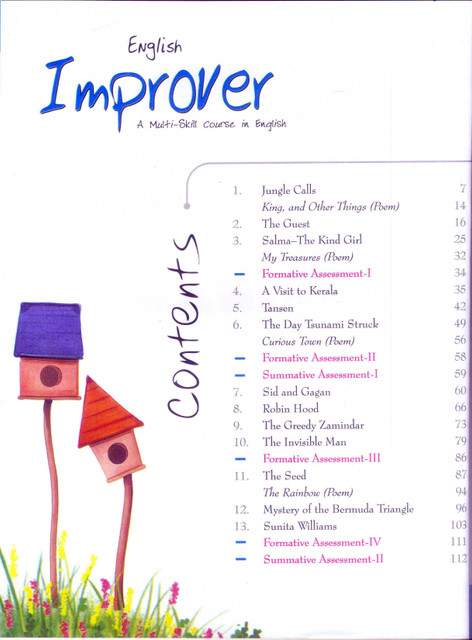 English
Improver
A Multi-Skill Course in English
Contents
1. Jungle Calls 7
King, and Other Things (Poem) 14
2. The Guest 16
3. Salma–The Kind Girl 25
My Treasures (Poem) 32
– Formative Assessment-I 34
4. A Visit to Kerala 35
5. Tansen 42
6. The Day Tsunami Struck 49
Curious Town (Poem) 56
– Formative Assessment-II 58
– Summative Assessment-I 59
7. Sid and Gagan 60
8. Robin Hood 66
9. The Greedy Zamindar 73
10. The Invisible Man 79
– Formative Assessment-III 86
11. The Seed 87
The Rainbow (Poem) 94
12. Mystery of the Bermuda Triangle 96
13. Sunita Williams 103
– Formative Assessment-IV 111
– Summative Assessment-II 112